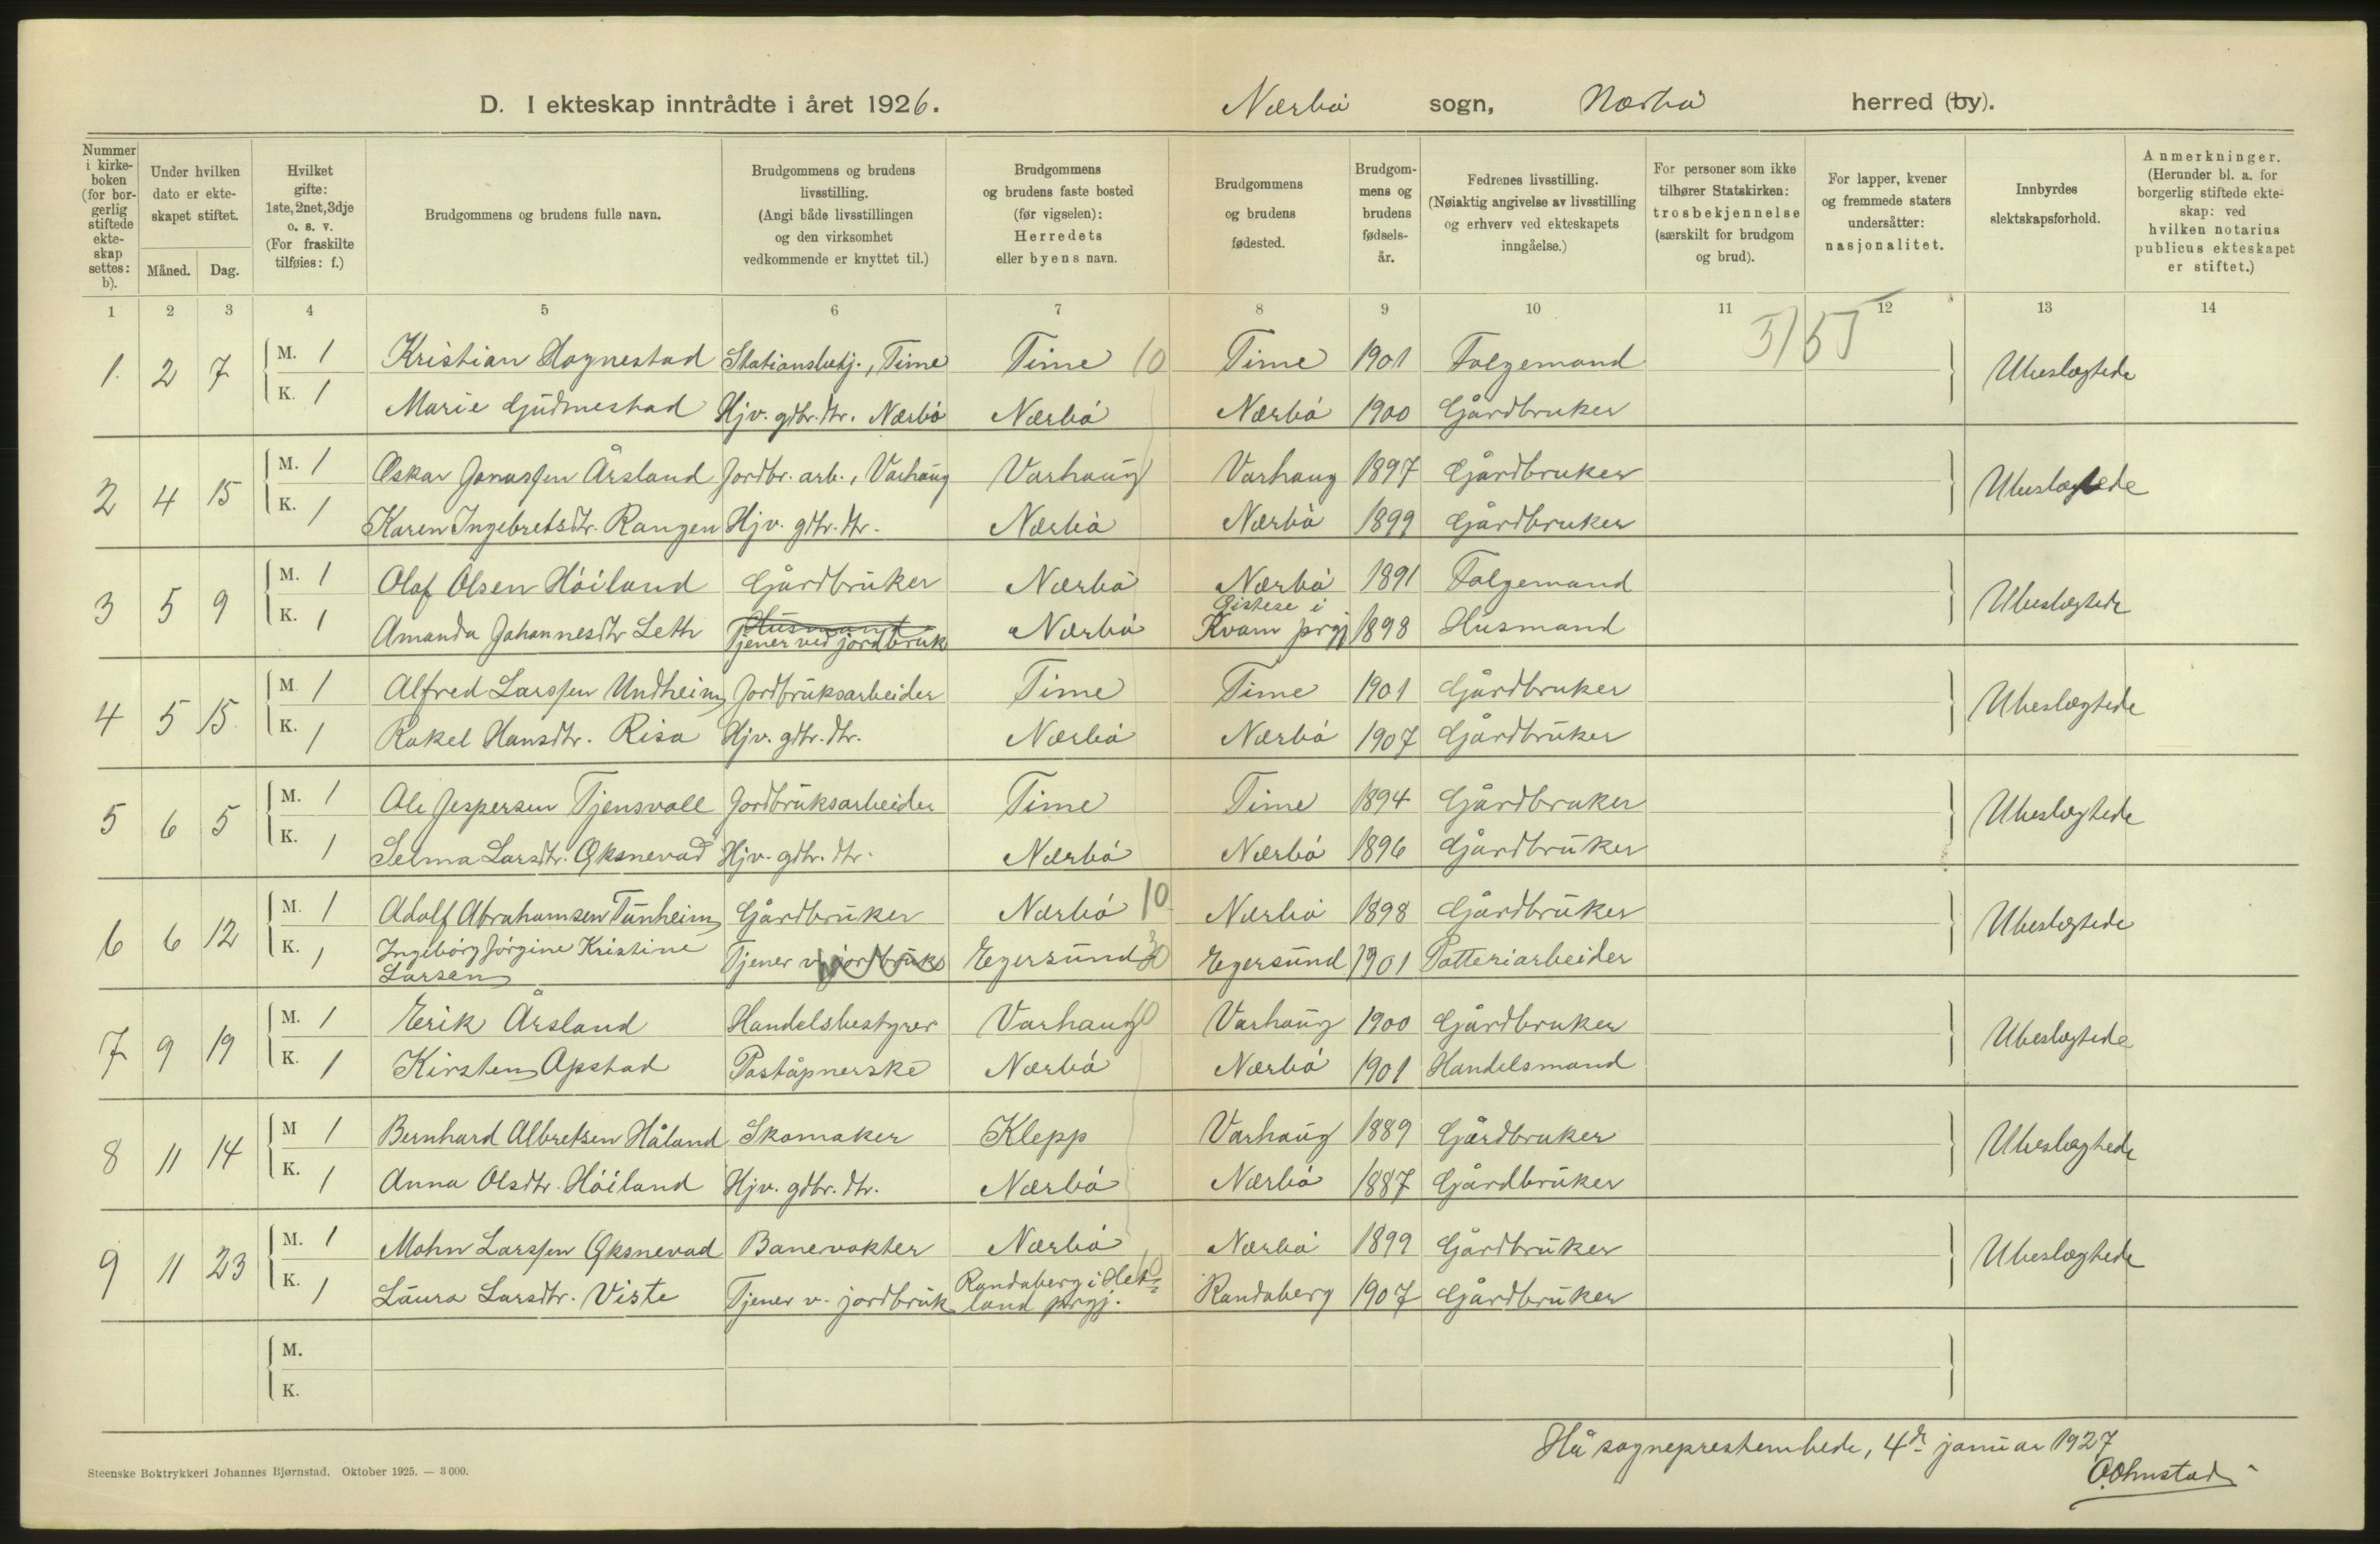 D. I ekteskap inntrådte i året 1926. Nærbö sogn, Nærbö herred (by).
Nummer i kirkeboken (for borgerlig stiftede ekteskap settes: b).
Under hvilken dato er ekteskapet stiftet.
Måned. Dag.
Hvilket gifte: 1ste, 2net, 3dje o. s. v. (For fraskilte tilføies: f.)
Brudgommens og brudens fulle navn.
Brudgommens og brudens livsstilling. (Angi både livsstillingen og den virksomhet vedkommende er knyttet til.)
Brudgommens og brudens faste bosted (før vigselen): Herredets eller byens navn.
Brudgommens og brudens fødested.
Brudgommens og brudens fødselsår.
Fedrenes livsstilling. (Nøiaktig angivelse av livsstilling og erhverv ved ekteskapets inngåelse.)
For personer som ikke tilhører Statskirken: trosbekjennelse (særskilt for brudgom og brud).
For lapper, kvener og fremmede staters undersåtter: nasjonalitet.
Innbyrdes slektskapsforhold.
Anmerkninger. (Herunder bl. a. for borgerlig stiftede ekteskap: ved hvilken notarius publicus ekteskapet er stiftet.)
1 2 3 4 5 6 7 8 9 10 11 12 13 14
1. 2 7 M. 1 Kristian Hognestad Stationsbetj., Time Time 10 Time 1901 Folgemand Ubeslegtede
K. 1 Marie Gudmestad Hjv. gdbr. dtr. Nærbö Nærbö Nærbö 1900 Gårdbruker
2 4 15 M. 1 Oskar Jonassen Årsland Jordbr. arb., Varhaug Varhaug Varhaug 1897 Gårdbruker Ubeslegtede
K. 1 Karen Ingebretsdtr. Rangen Hjv. gdbr. dtr. Nærbö Nærbö 1899 Gårdbruker
3 5 9 M. 1 Olaf Olsen Höiland Gårdbruker Nærbö Nærbö 1891 Folgemand Ubeslegtede
K. 1 Amanda Johannesdtr Leth Husmand Tjener ved jordbruk Nærbö Östese i Kvam prgj 1898 Husmand
4 5 15 M. 1 Alfred Larssen Undheim Jordbruksarbeider Time Time 1901 Gårdbruker Ubeslegtede
K. 1 Rakel Hansdtr. Risa Hjv. gdbr. dtr. Nærbö Nærbö 1907 Gårdbruker
5 6 5 M. 1 Ole Jespersen Tjensvoll Jordbruksarbeider Time Time 1894 Gårdbruker Ubeslegtede
K. 1 Selma Larsdtr. Öksnevad Hjv. gdbr. dtr. Nærbö Nærbö 1896 Gårdbruker
6 6 12 M. 1 Adolf Abrahamsen Tunheim Gårdbruker Nærbö 10 Nærbö 1898 Gårdbruker Ubeslegtede
K. 1 Ingeborg Jörgine Kristine Larsen Tjener v. jordbruk Egersund Egersund 1901 Potteriarbeider
7 9 19 M. 1 Erik Årsland Handelsbestyrer Varhaug 10 Varhaug 1900 Gårdbruker Ubeslegtede
K. 1 Kirsten Opstad Poståpnerske Nærbö Nærbö 1901 Handelsmand
8 11 14 M 1 Bernhard Albretsen Håland Skomaker Klepp Varhaug 1889 Gårdbruker Ubeslegtede
K. 1 Anna Olsdtr. Höiland Hjv. gdbr. dtr. Nærbö Nærbö 1887 Gårdbruker
9 11 23 M. 1 Mohn Larssen Öksnevad Banevokter Nærbö Nærbö 1899 Gårdbruker Ubeslegtede
K. 1 Laura Larsdtr. Viste Tjener v. jordbruk Randaberg i Hetland prgj. Randaberg 1907 Gårdbruker
M.
K.
Hå sogneprestembede, 4de januar 1927
Steenske Boktrykkeri Johannes Bjørnstad. Oktober 1925. — 3 000.